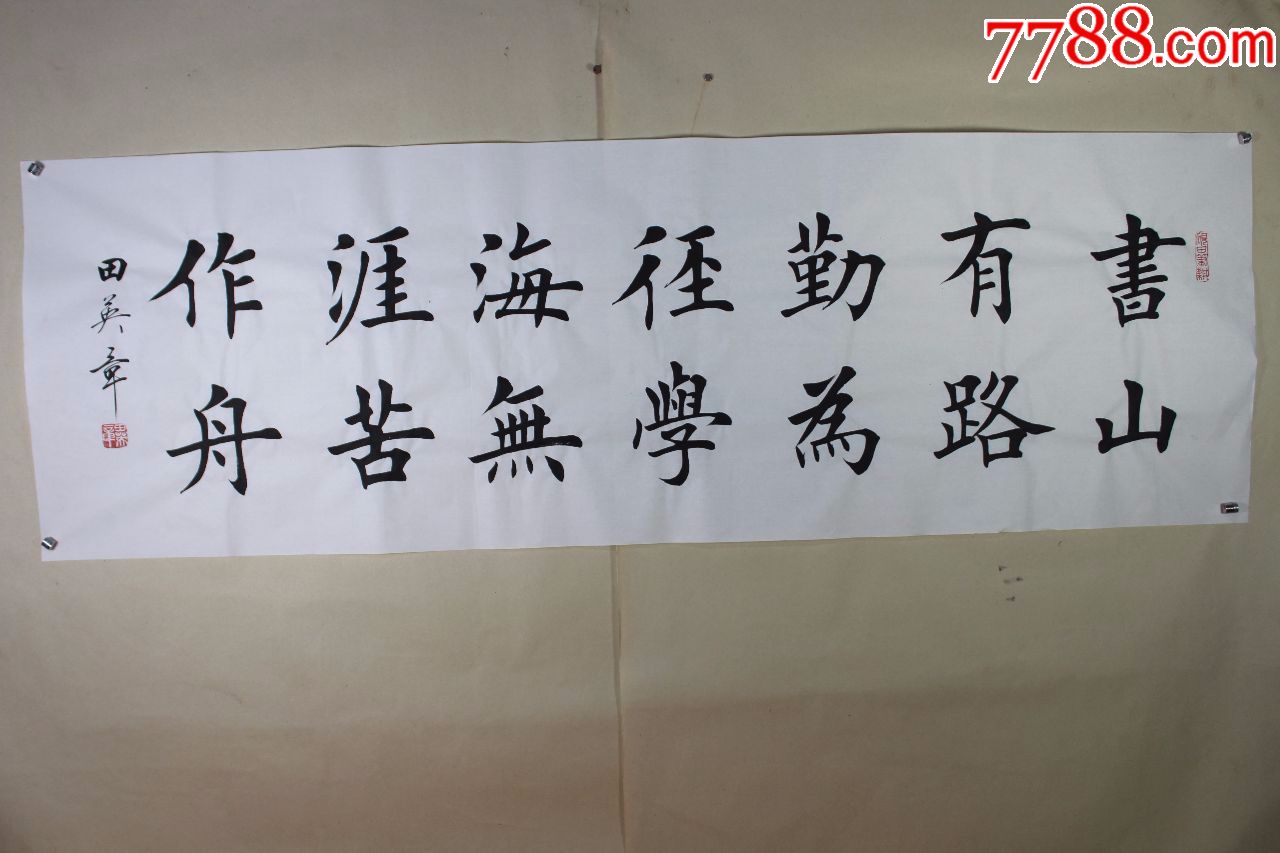 7788.com
書山
有路
勤為
徑學
海無
涯苦
作舟
田英章